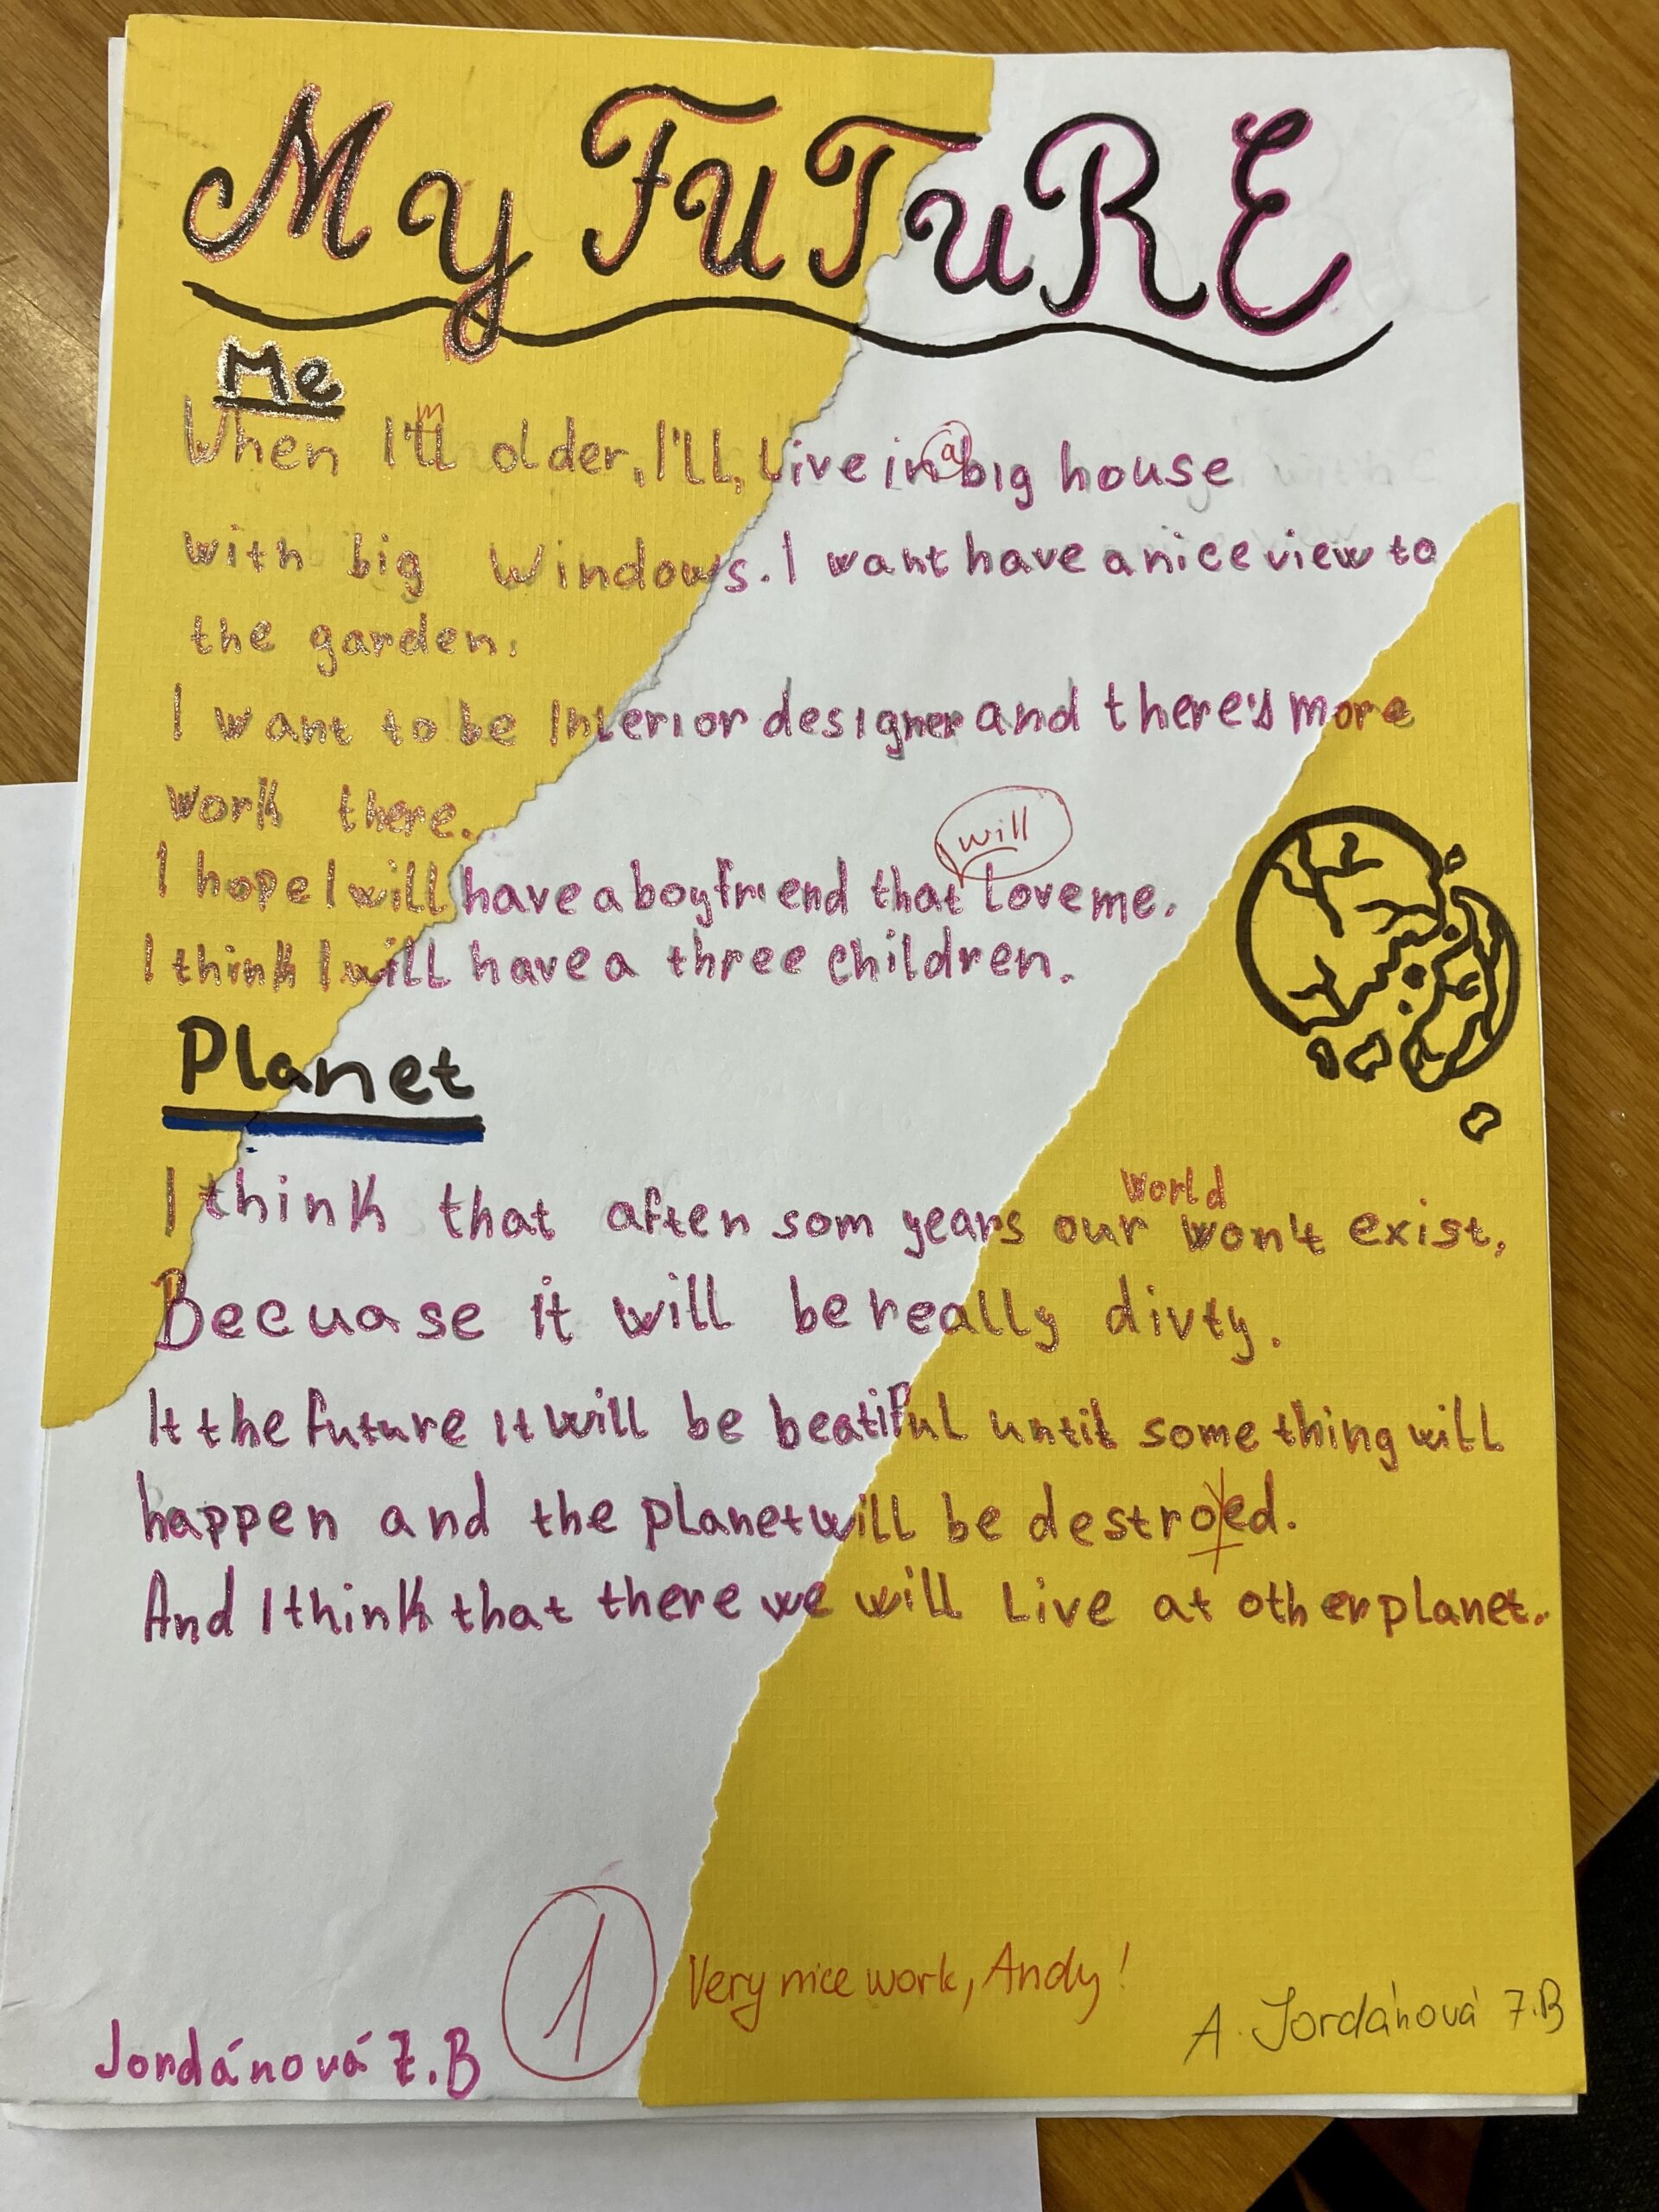 My FuTuRE
Me
m
When I'll older, I'll, live in big house
a
with big Windows. I want have a nice view to
the garden.
I want to be Interior designer and there's more
work there.
will
I hope I will have a boyfriend that love me.
I think I will have a three children.
Planet
World
I think that aften som years our won't exist,
Becuase it will be really divty.
It the future it will be beatiful until something will
happen and the planet will be destroed.
y
And I think that there we will Live at other planet.
1
Very nice work, Andy!
A. Jordánová 7.B
Jordánová 7.B